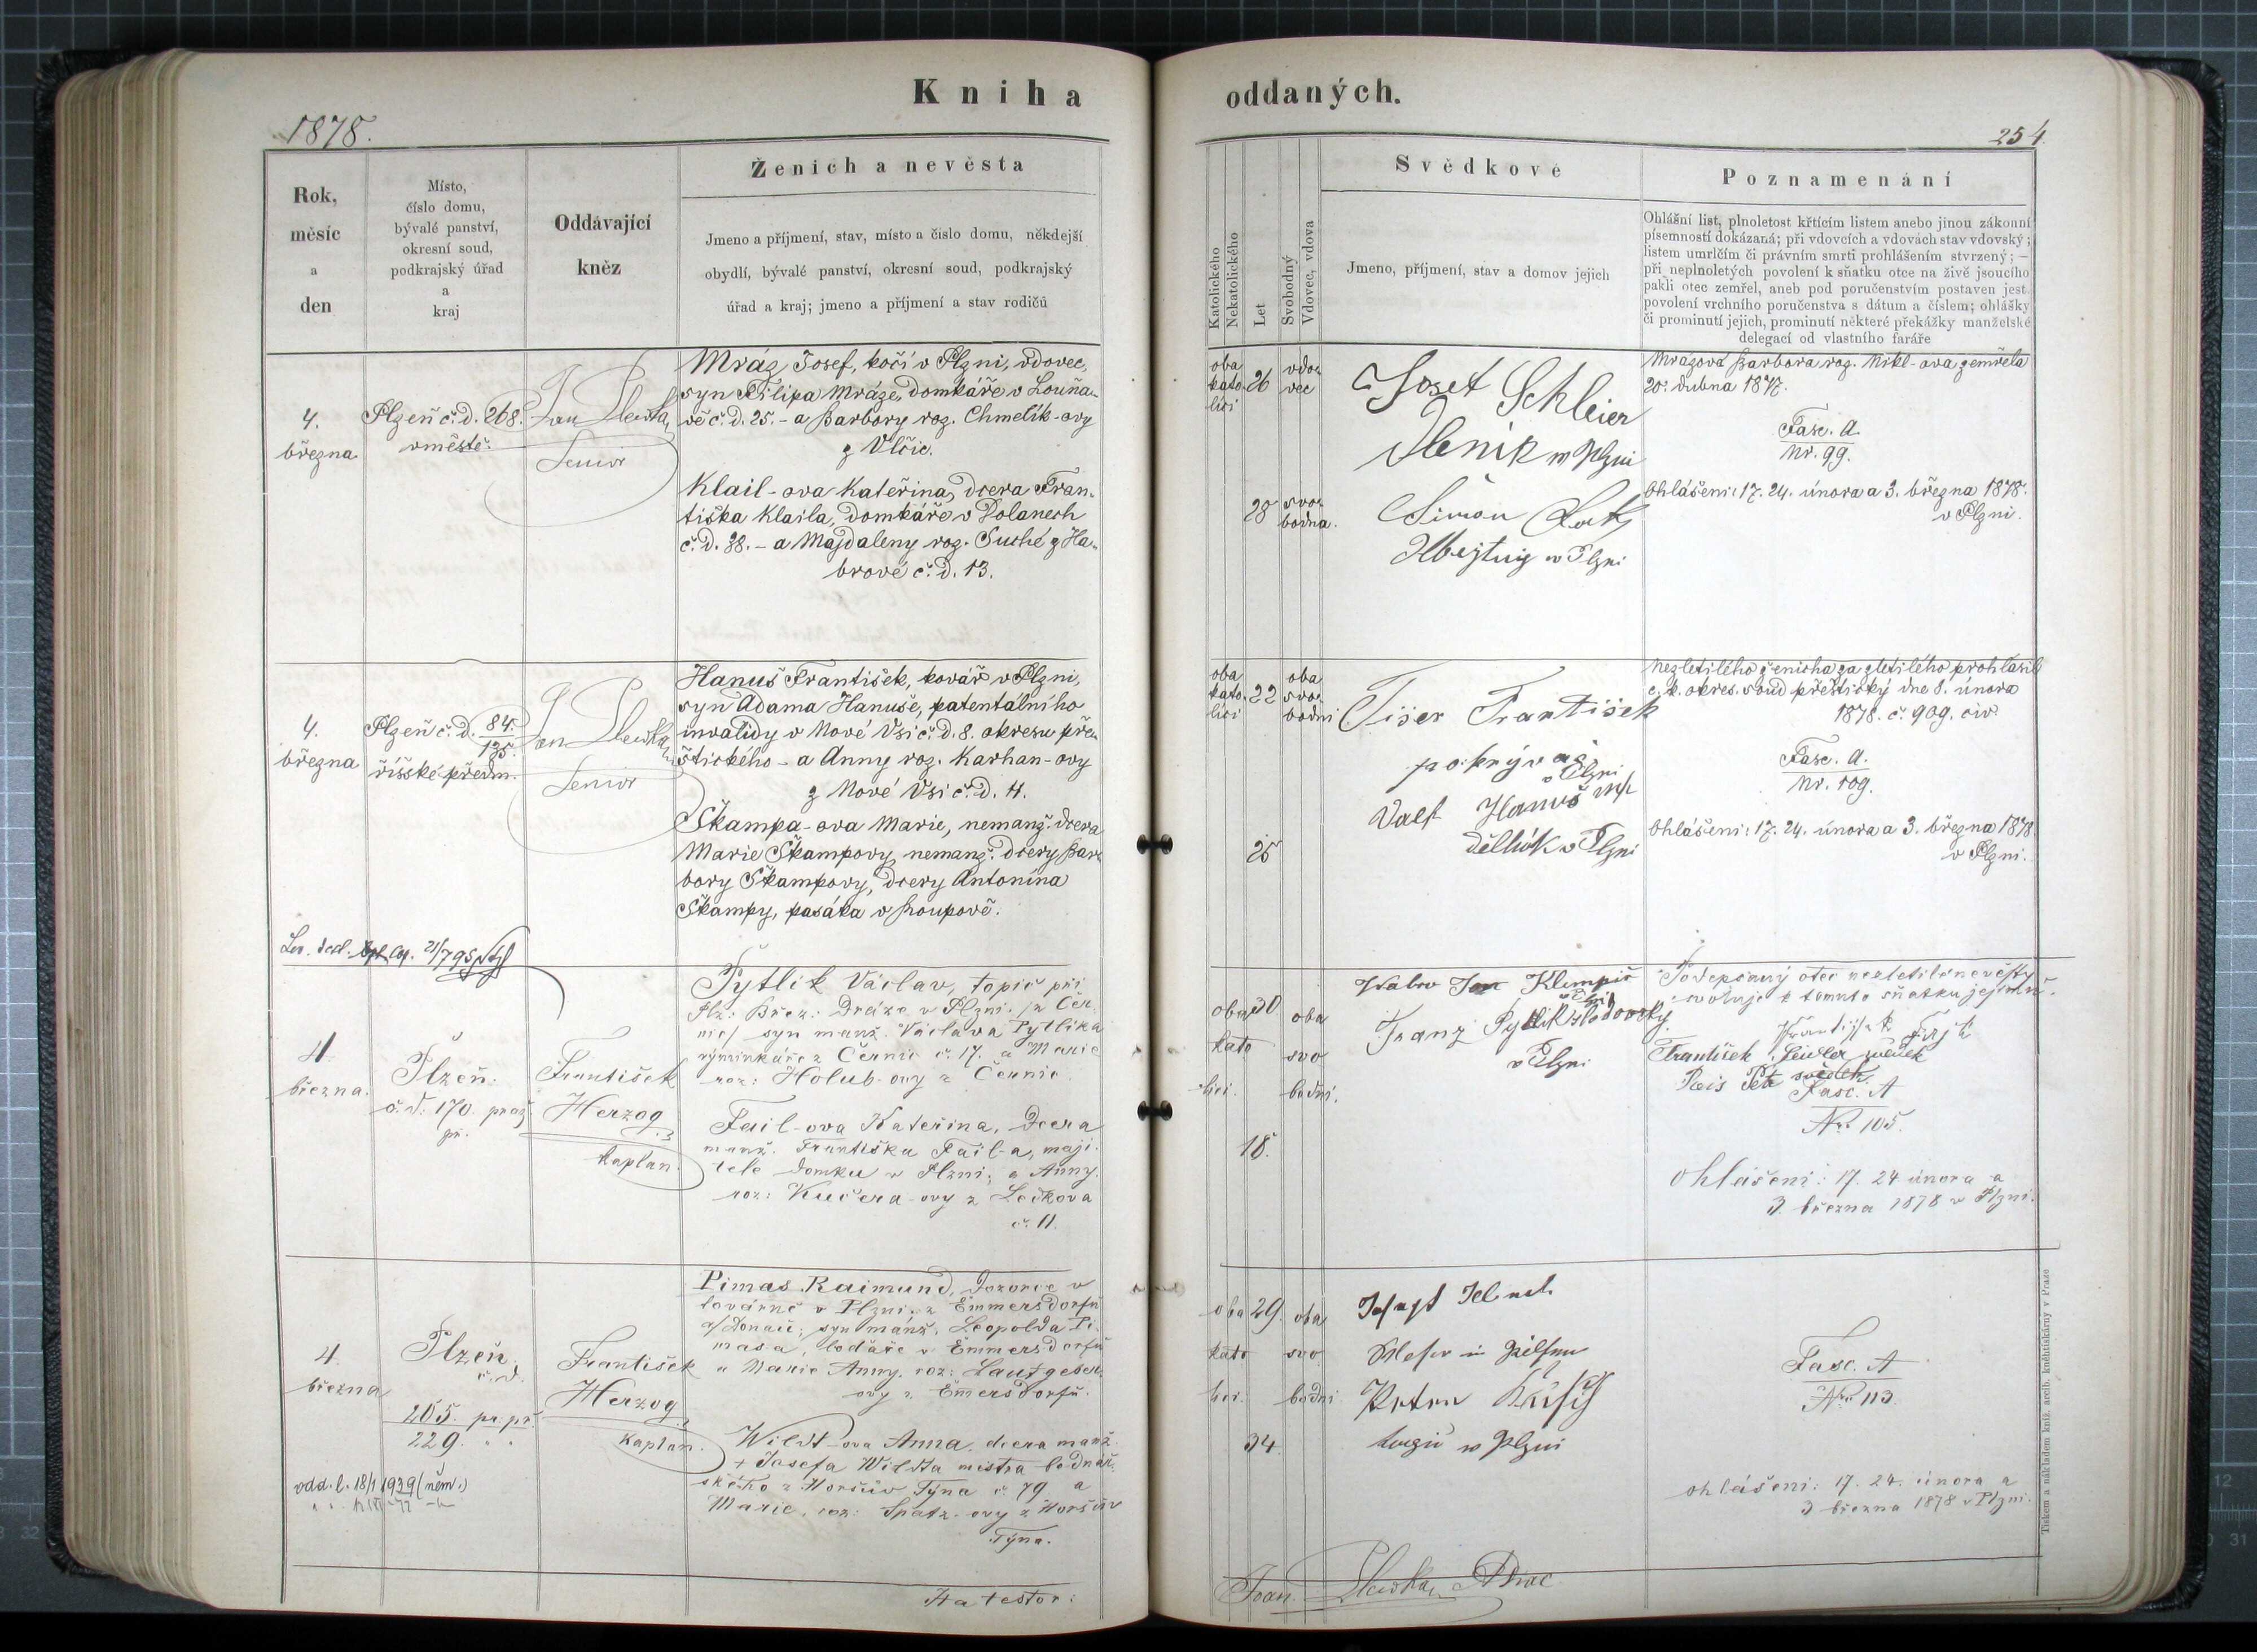 Kniha oddaných.
1878.
254
Rok,
měsíc
a
den
Místo,
číslo domu,
bývalé panství,
okresní soud,
podkrajský úřad
a
kraj
Oddávající
kněz
Ženich a nevěsta
Jmeno a příjmení, stav, místo a číslo domu, někdejší
obydlí, bývalé panství, okresní soud, podkrajský
úřad a kraj; jmeno a příjmení a stav rodičů
Katolického
Nekatolického
Let
Svobodný
Vdovec, vdova
Svědkové
Jmeno, příjmení, stav a domov jejich
Poznamenání
Ohlášní list, plnoletost křtícím listem anebo jinou zákonní
písemností dokázaná; při vdovcích a vdovách stav vdovský;
listem umrlčím či právním smrti prohlášením stvrzený; —
při neplnoletých povolení k sňatku otce na živě jsoucího
pakli otec zemřel, aneb pod poručenstvím postaven jest
povolení vrchního poručenstva s dátum a číslem; ohlášky
či prominutí jejich, prominutí některé překážky manželské
delegací od vlastního faráře
4.
března
Plzeň č. d. 268.
v městě.
Jan
Senior
Mráz Josef, kočí v Plzni, vdovec,
syn Filipa Mráze, domkáře v Louňa-
vě č. d. 25. - a Barbory roz. Chmelík-ovy
z Vlčic.
Klail-ova Kateřina, dcera Fran-
tiška Klaila, domkáře v Dolanech
č. d. 38. - a Majdaleny roz. Suché z Ha-
brové č. d. 13.
oba
kato
líci
26
vdo-
vec
28
svo-
bodna.
Josef Schleier
v Plzni
Šimon
v Plzni
Mrazová Barbora roz. Mikl-ova zemřela
20. dubna 1877.
Fasc. A.
Nr. 99.
Ohlášeni: 17. 24. února a 3. března 1878.
v Plzni.
4.
března
Plzeň č. d. 84.
135.
říšské předm.
Jan
Senior
Hanuš František, kovář v Plzni,
syn Adama Hanuše, patentálního
invalidy v Nové Vsi č. d. 8. okresu pře-
štického - a Anny roz. Karhan-ovy
z Nové Vsi č. d. 11.
Škampa-ova Marie, nemanž. dcera
Marie Škampovy, nemanž. dcery Bar-
bory Škampovy, dcery Antonína
Škampy, pasáka v Roupově.
oba
kato
líci
22
oba
svo-
bodni
25
Tišer František
pokrývač
v Plzni
Hanuš
v Plzni
Nezletilého ženicha za zletilého prohlásil
c. k. okres. soud přeštický dne 8. února
1878. č. 909. civ.
Fasc. A.
Nr. 109.
Ohlášeni: 17. 24. února a 3. března 1878.
v Plzni.
4
března.
Plzeň.
č. d. 170. praž.
př.
František
Herzog
kaplan.
Pytlík Václav, topič při
Plz. Břez. Dráze v Plzni /z Čer-
nic/ syn manž. Václava Pytlíka
z Černic č. 17. a Marie
roz: Holub-ovy z Černic.
Fail-ova Kateřina, dcera
manž. Františka Fail-a, maji-
tele domku v Plzni, a Anny
roz: Kučera-ovy z Ledkova
č. 11.
oba
kato
lici.
30
oba
svo
bodni.
18.
Klempíř
v Plzni
Franz Pytlik
v Plzni
Podepsaný otec nezletilé nevěsty
svoluje k tomuto sňatku jejímu.
František Fajl
František
Petr svědek.
Fasc. A
Nr. 105.
ohlášeni: 17. 24 února a
3. března 1878 v Plzni.
4
března
Plzeň
č. d.
205. pr. př.
229. " "
František
Herzog
kaplan.
Pimas Raimund, dozorce v
továrně v Plzni, z Emmersdorfu
a/Donau, syn manž. Leopolda Pi-
masa, loďaře v Emmersdorfu
a Marie Anny, roz:
ovy z Emmersdorfu.
Wildt-ova Anna, dcera manž.
+ Josefa Wildta mistra bednář-
ského z Horšův Týna č. 79 a
Marie, roz: Spatz-ovy z Horšův
Týna.
oba
kato
lici.
29.
oba
svo
bodni
34
in Pilsen
v Plzni
Fasc. A
Nr. 113.
ohlášeni: 17. 24. února a
3 března 1878 v Plzni.
vdd. l. 18/1 1939 (něm.)
Attestor:
Tiskem a nákladem kníž. arcib. knihtiskárny v Praze